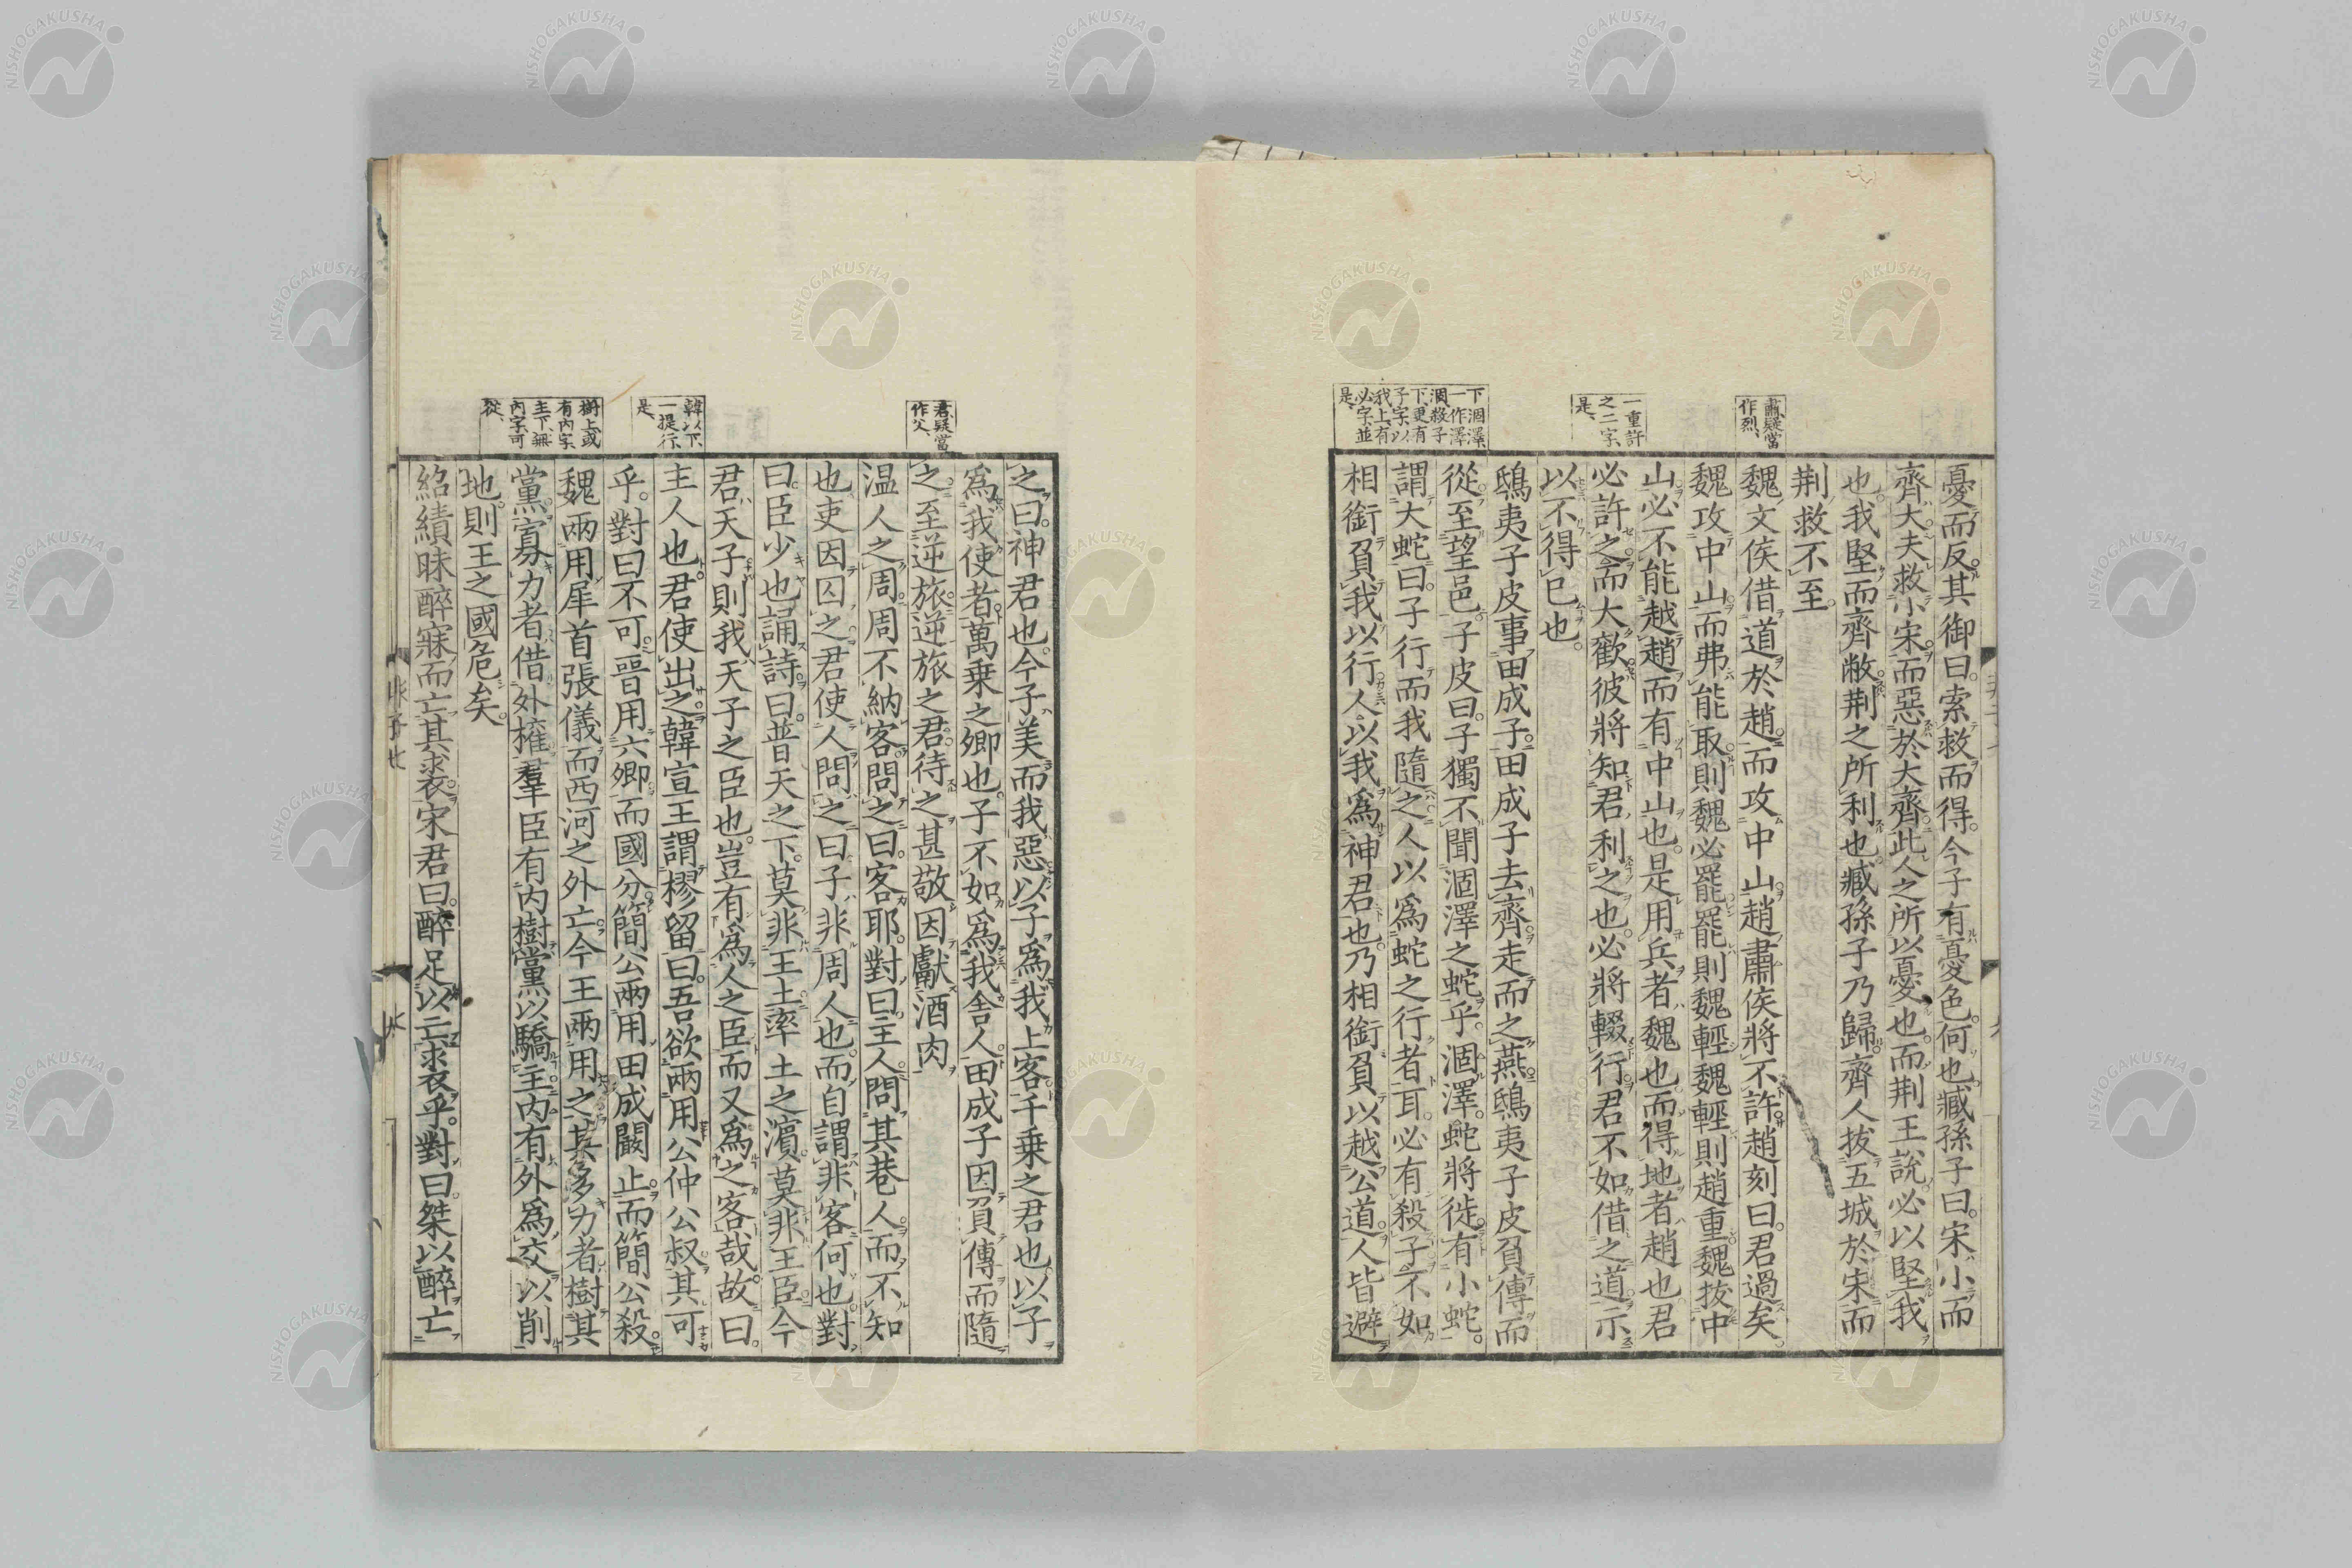 肅疑當
作烈
一重許
之二字
是
下涸澤
一作澤
涸殺子
下更有
子字以
我上有
必字並
是
憂而反其御曰索救而得今子有憂色何也臧孫子曰宋小而
齊大夫救小宋而惡於大齊此人之所以憂也而荆王說必以堅我
也我堅而齊敝荆之所利也臧孫子乃歸齊人拔五城於宋而
荆救不至
魏文侯借道於趙而攻中山趙肅侯將不許趙刻曰君過矣
魏攻中山而弗能取則魏必罷罷則魏輕魏輕則趙重魏拔中
山必不能越趙而有中山也是用兵者魏也而得地者趙也君
必許之而大歡彼將知君利之也必將輟行君不如借之道示
以不得已也
鴟夷子皮事田成子田成子去齊走而之燕鴟夷子皮負傳而
從至望邑子皮曰子獨不聞涸澤之蛇乎涸澤蛇將徙有小蛇
謂大蛇曰子行而我隨之人以爲蛇之行者耳必有殺子不如
相銜負我以行人以我爲神君也乃相銜負以越公道人皆避
君疑當
作父
韓以下
一提行
是
樹上或
有內字
主下無
內字可
從
之曰神君也今子美而我惡以子爲我上客千乘之君也以子
爲我使者萬乘之卿也子不如爲我舍人田成子因負傳而隨
之至逆旅逆旅之君待之甚敬因獻酒肉
温人之周周不納客問之曰客耶對曰主人問其巷人而不知
也吏因囚之君使人問之曰子非周人也而自謂非客何也對
曰臣少也誦詩曰普天之下莫非王土率土之濱莫非王臣今
君天子則我天子之臣也豈有爲人之臣而又爲之客哉故曰
主人也君使出之韓宣王謂樛留曰吾欲兩用公仲公叔其可
乎對曰不可晉用六卿而國分簡公兩用田成闞止而簡公殺
魏兩用犀首張儀而西河之外亡今王兩用之其多力者樹其
黨寡力者借外權羣臣有内樹黨以驕主内有外爲交以削
地則王之國危矣
紹績昧醉寐而亡其裘宋君曰醉足以亡裘乎對曰桀以醉亡